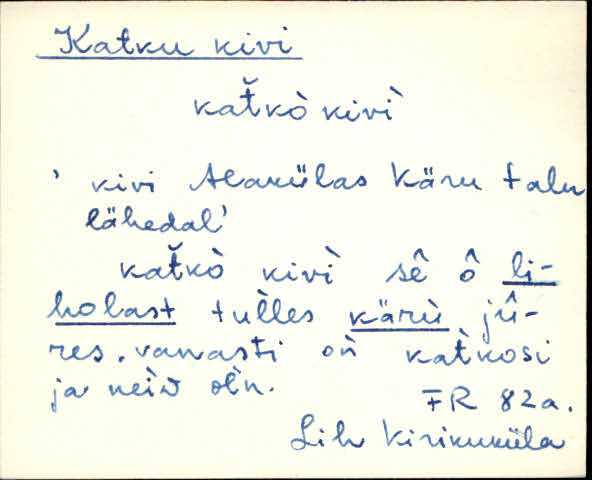 Katku kivi
kat̆kò kivì
' kivi Alakülas Käru talu
lähedal'
kat̆kò kivì sê ô li-
holast tùlles kärù jû-
res. vanasti oǹ kat̀kosi
ja neìd oln̄.
FR 82a.
Lih Kirikuküla